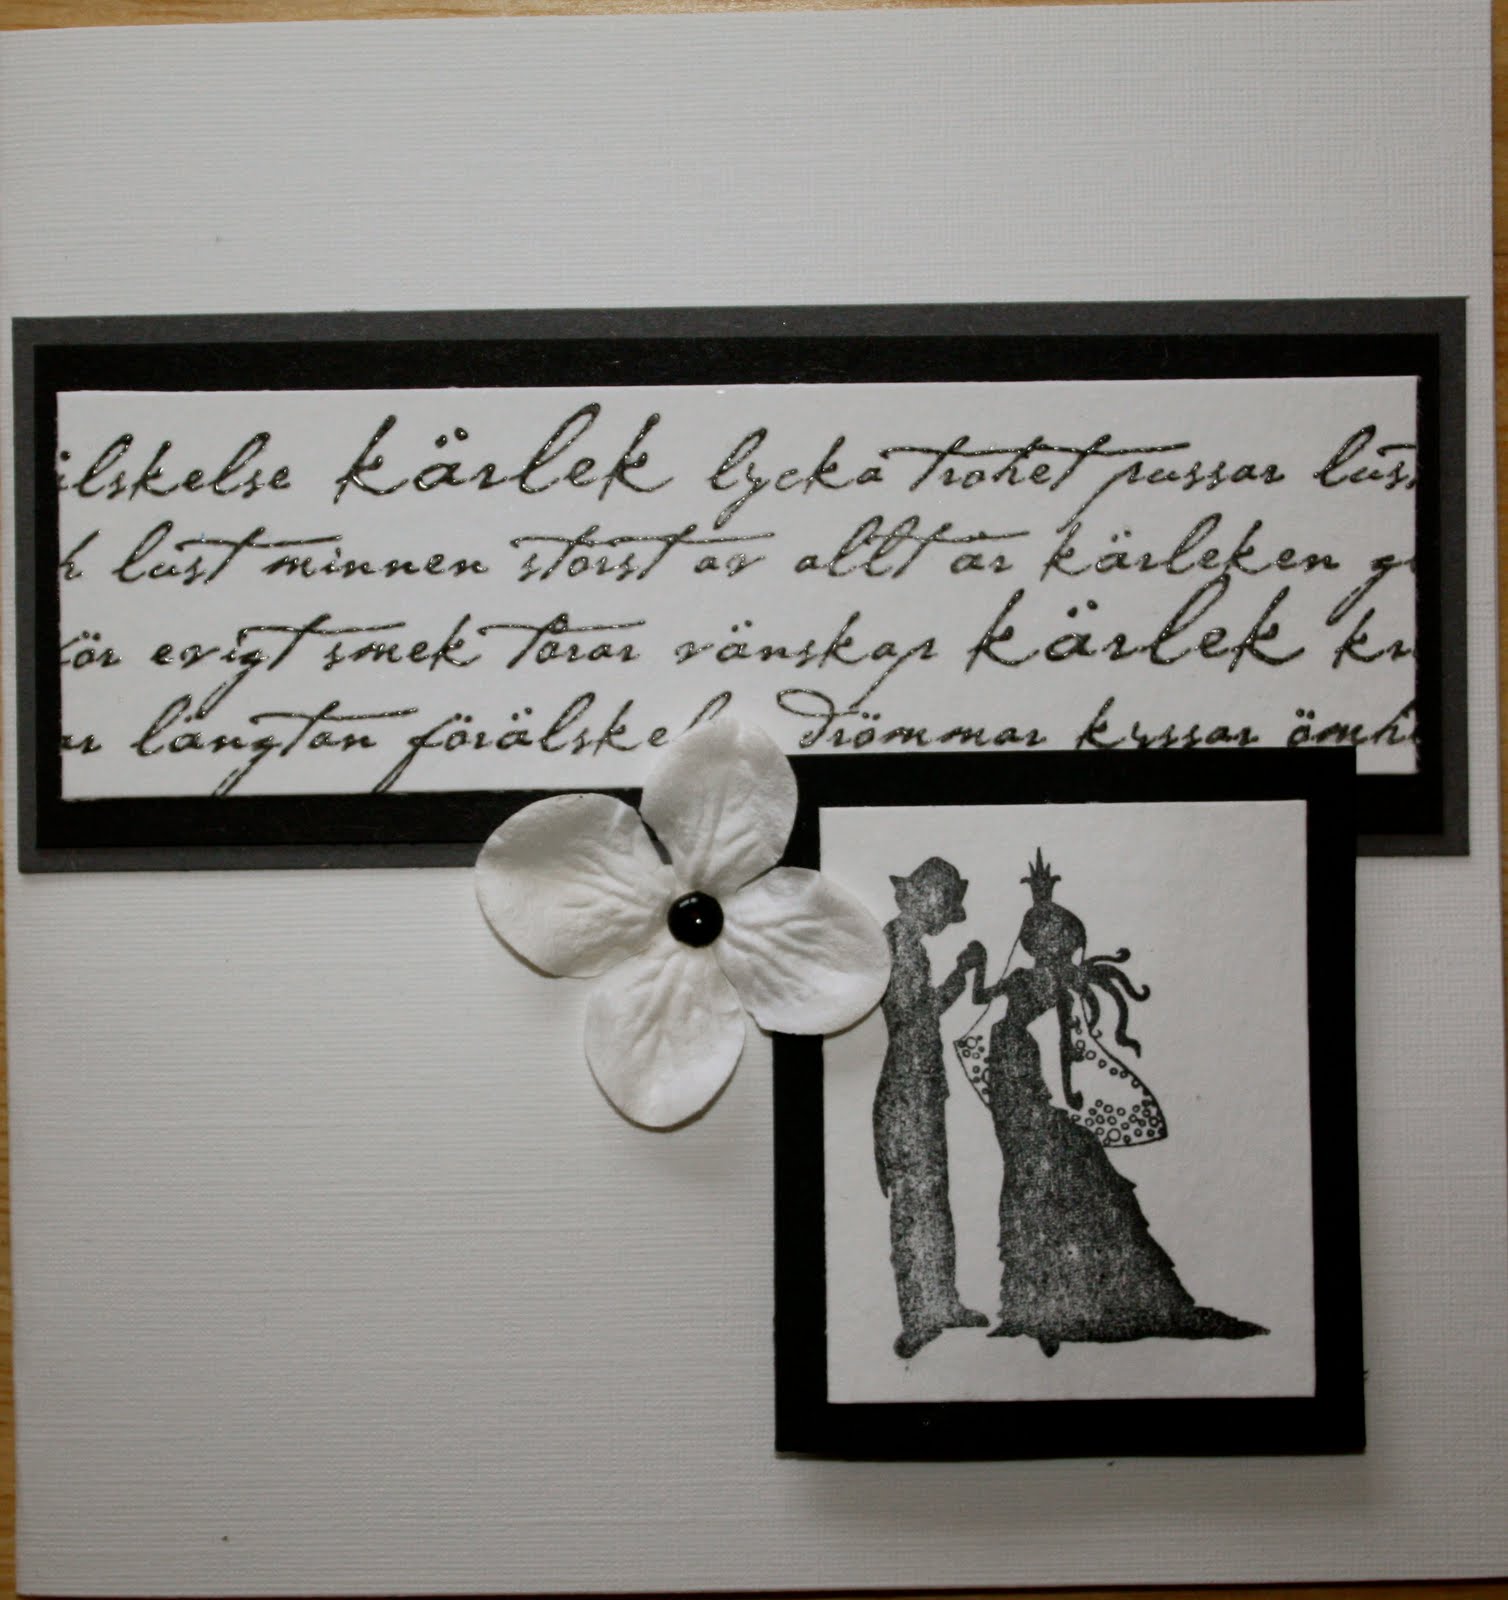 älskelse kärlek lycka trohet pussar lust
h lust minnen störst av allt är kärleken g
för evigt smek tårar vänskap kärlek kr
ar längtan förälskel drömmar kyssar ömh